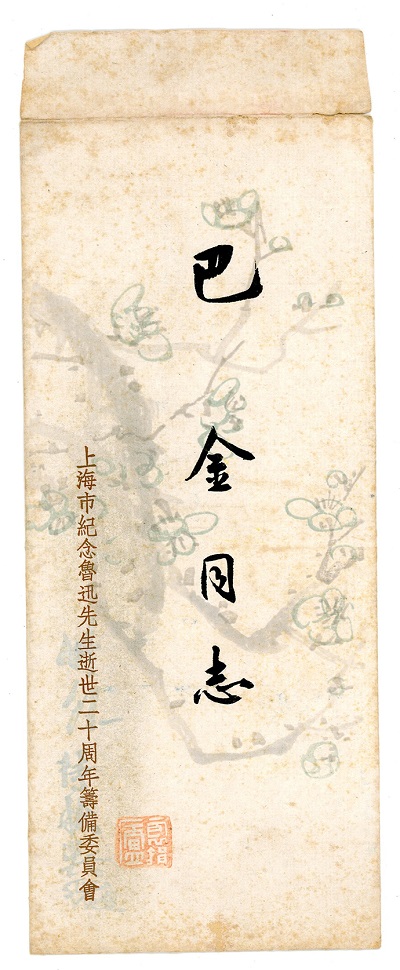 巴金同志
上海市紀念魯迅先生逝世二十周年籌備委員會